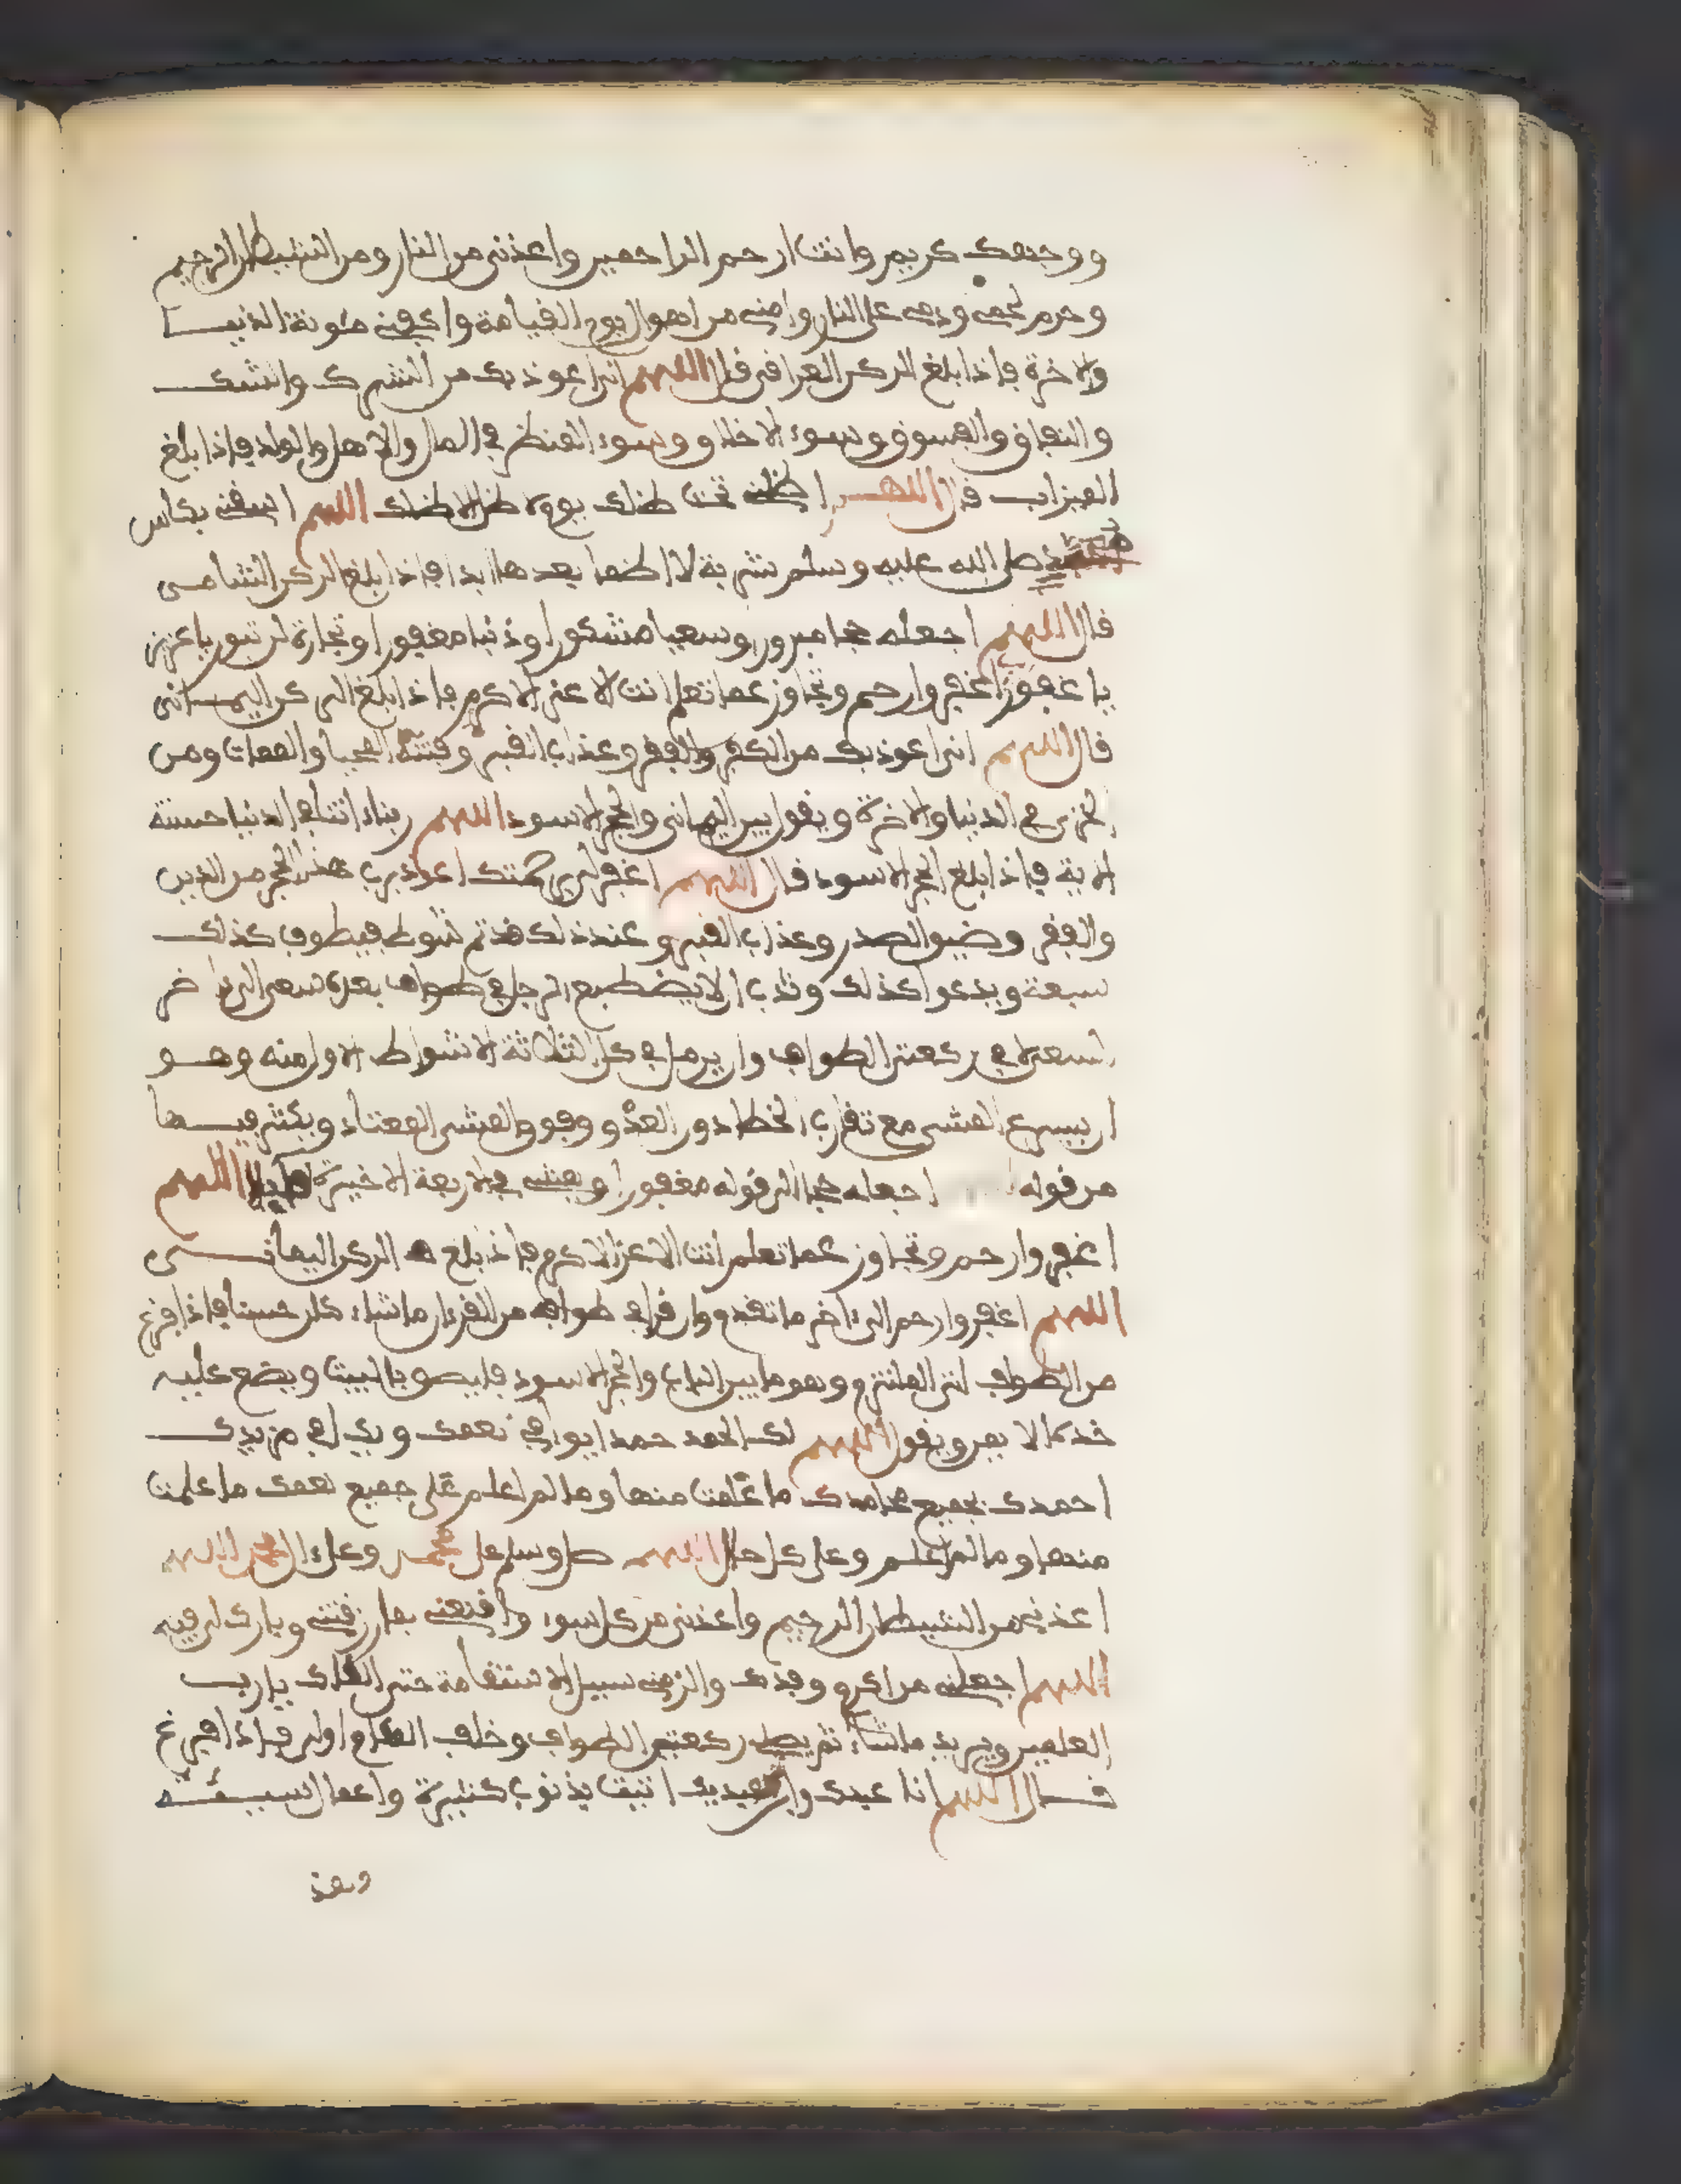 ووجهك كريم وانت ارحم الراحمين واعذنى من النار ومن الشيطان الرجيم
وحرم لحمى ودمى على النار وامنى من اهوال يوم القيامة واكفنى مئونة الدنيا
والاخرة فاذا بلغ الركن العراقى قال اللهم انى اعوذ بك من الشرك والشك
والنفاق والفسوق وسوء الاخلاق وسوء المنظر فى المال والاهل والولد فاذا بلغ
الميزاب قال اللهم اظلنى تحت ظلك يوم لا ظل الا ظلك اللهم اسقنى بكاس
محمد صلى الله عليه وسلم شربة لا اظما بعدها ابدا فاذا بلغ الركن الشامى
قال اللهم اجعله حجا مبرورا وسعيا مشكورا وذنبا مغفورا وتجارة لن تبور يا عزيز
يا غفور رب اغفر وارحم وتجاوز عما تعلم انت الاعز الاكرم فاذا بلغ الركن اليمانى
قال اللهم انى اعوذ بك من الكفر والفقر وعذاب القبر وفتنة المحيا والممات ومن
الخزى فى الدنيا والاخرة ويقول بين اليمانى والحجر الاسود اللهم ربنا ءاتنا فى الدنيا حسنة
الاية فاذا بلغ الحجر الاسود قال اللهم اغفر لى برحمتك اعوذ برب هذا الحجر من الدين
والفقر وضيق الصدر وعذاب القبر وعند ذلك قد تم شوط فيطوف كذلك
سبعة ويدعوا كذلك وندب ان لا يضطبع الرجل فى طواف بعده سعى الى ءاخر
السعى لا فى ركعتى الطواف وان يرمل فى كل الثلاثة الاشواط الاول منه وهو
ان يسرع المشى مع تقارب الخطا دون العدو وفوق المشى المعتاد ويكثر فيها
من قوله اجعله حجا الى قوله مغفورا ويمشى فى الاربعة الاخيرة قايلا اللهم
اغفر وارحم وتجاوز عما تعلم انت الاعز الاكرم فاذا بلغ الركن اليمانى
اللهم اغفر وارحم الى ءاخر ما تقدم وان قرا فى طوافه من القرءان ما شاء كان حسنا فاذا فرغ
من الطواف اتى الملتزم وهو ما بين الباب والحجر الاسود فليصق بالبيت ويضع عليه
خده الايمن ويقول اللهم لك الحمد حمدا يوافى نعمك ويكافى مزيدك
احمدك بجميع محامدك ما علمت منها وما لم اعلم على جميع نعمك ما علمت
منها وما لم اعلم وعلى كل حال اللهم صل وسلم على محمد وعلى ءال محمد اللهم
اعذنى من الشيطان الرجيم واعذنى من كل سوء واقنعنى بما رزقتنى وبارك لى فيه
اللهم اجعلنى من اكرم وفدك والزمنى سبيل الاستقامة حتى القاك يا رب
العلمين ويزيد ما شاء ثم يصلى ركعتى الطواف وخلف المقام اولى فاذا فرغ
قال اللهم انا عبدك وابن عبديك اتيت بذنوب كثيرة واعمال سيئة
وهذ